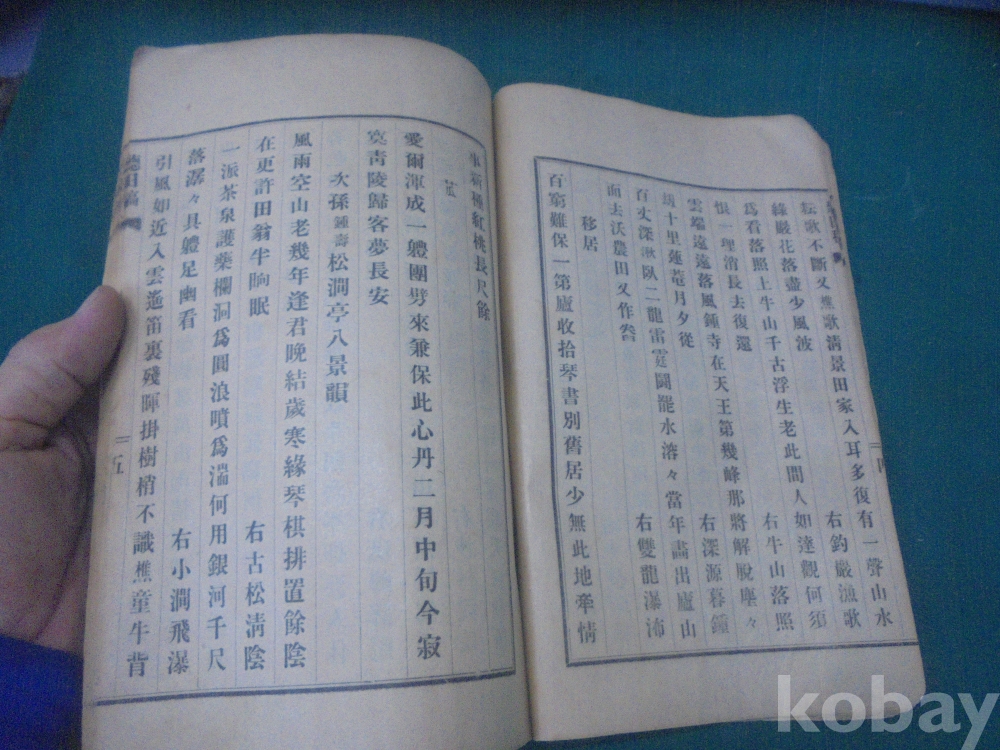 耘歌不斷又樵歌淸景田家入耳多復有一聲山水
綠巖花落盡少風波 右釣巖漁歌
爲看落照上牛山千古浮生老此間人如達觀何須
恨一理消長去復還 右牛山落照
雲端遠遠落風鍾寺在天王第幾峰那將解脫塵々
刼十里蓮菴月夕從 右深源暮鐘
百丈深湫臥二龍雷霆鬪罷水溶々當年畵出廬山
面去沃農田又作舂 右雙龍瀑沛
移居
百窮難保一第廬收拾琴書別舊居少無此地牽情
事新種紅桃長尺餘
愛爾渾成一軆團劈來兼保此心丹二月中旬今寂
寞靑陵歸客夢長安
次孫鍾壽松澗亭八景韻
風雨空山老幾年逢君晚結歲寒緣琴棋排置餘陰
在更許田翁牛晌眠 右古松淸陰
一派茶泉護藥欄洞爲圓浪噴爲湍何用銀河千尺
落潺々具軆足幽看 右小澗飛瀑
引風如近入雲遙笛裏殘暉掛樹梢不識樵童牛背
五
kobay